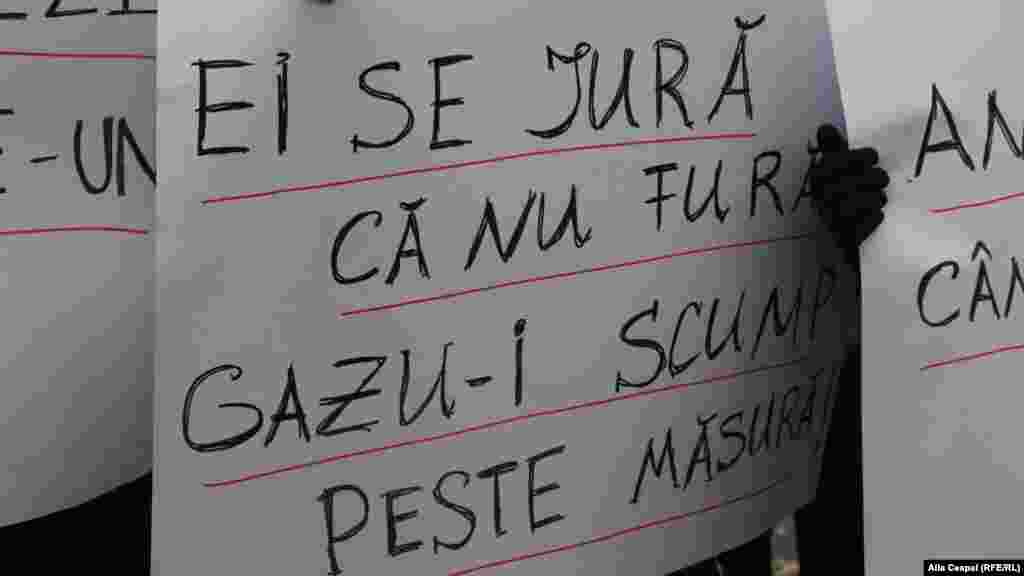 EI SE JURĂ
CĂ NU FURĂ
GAZU-I SCUMP
PESTE MĂSURĂ!
-UN
AN
CÂN
Alla Ceapai (RFE/RL)